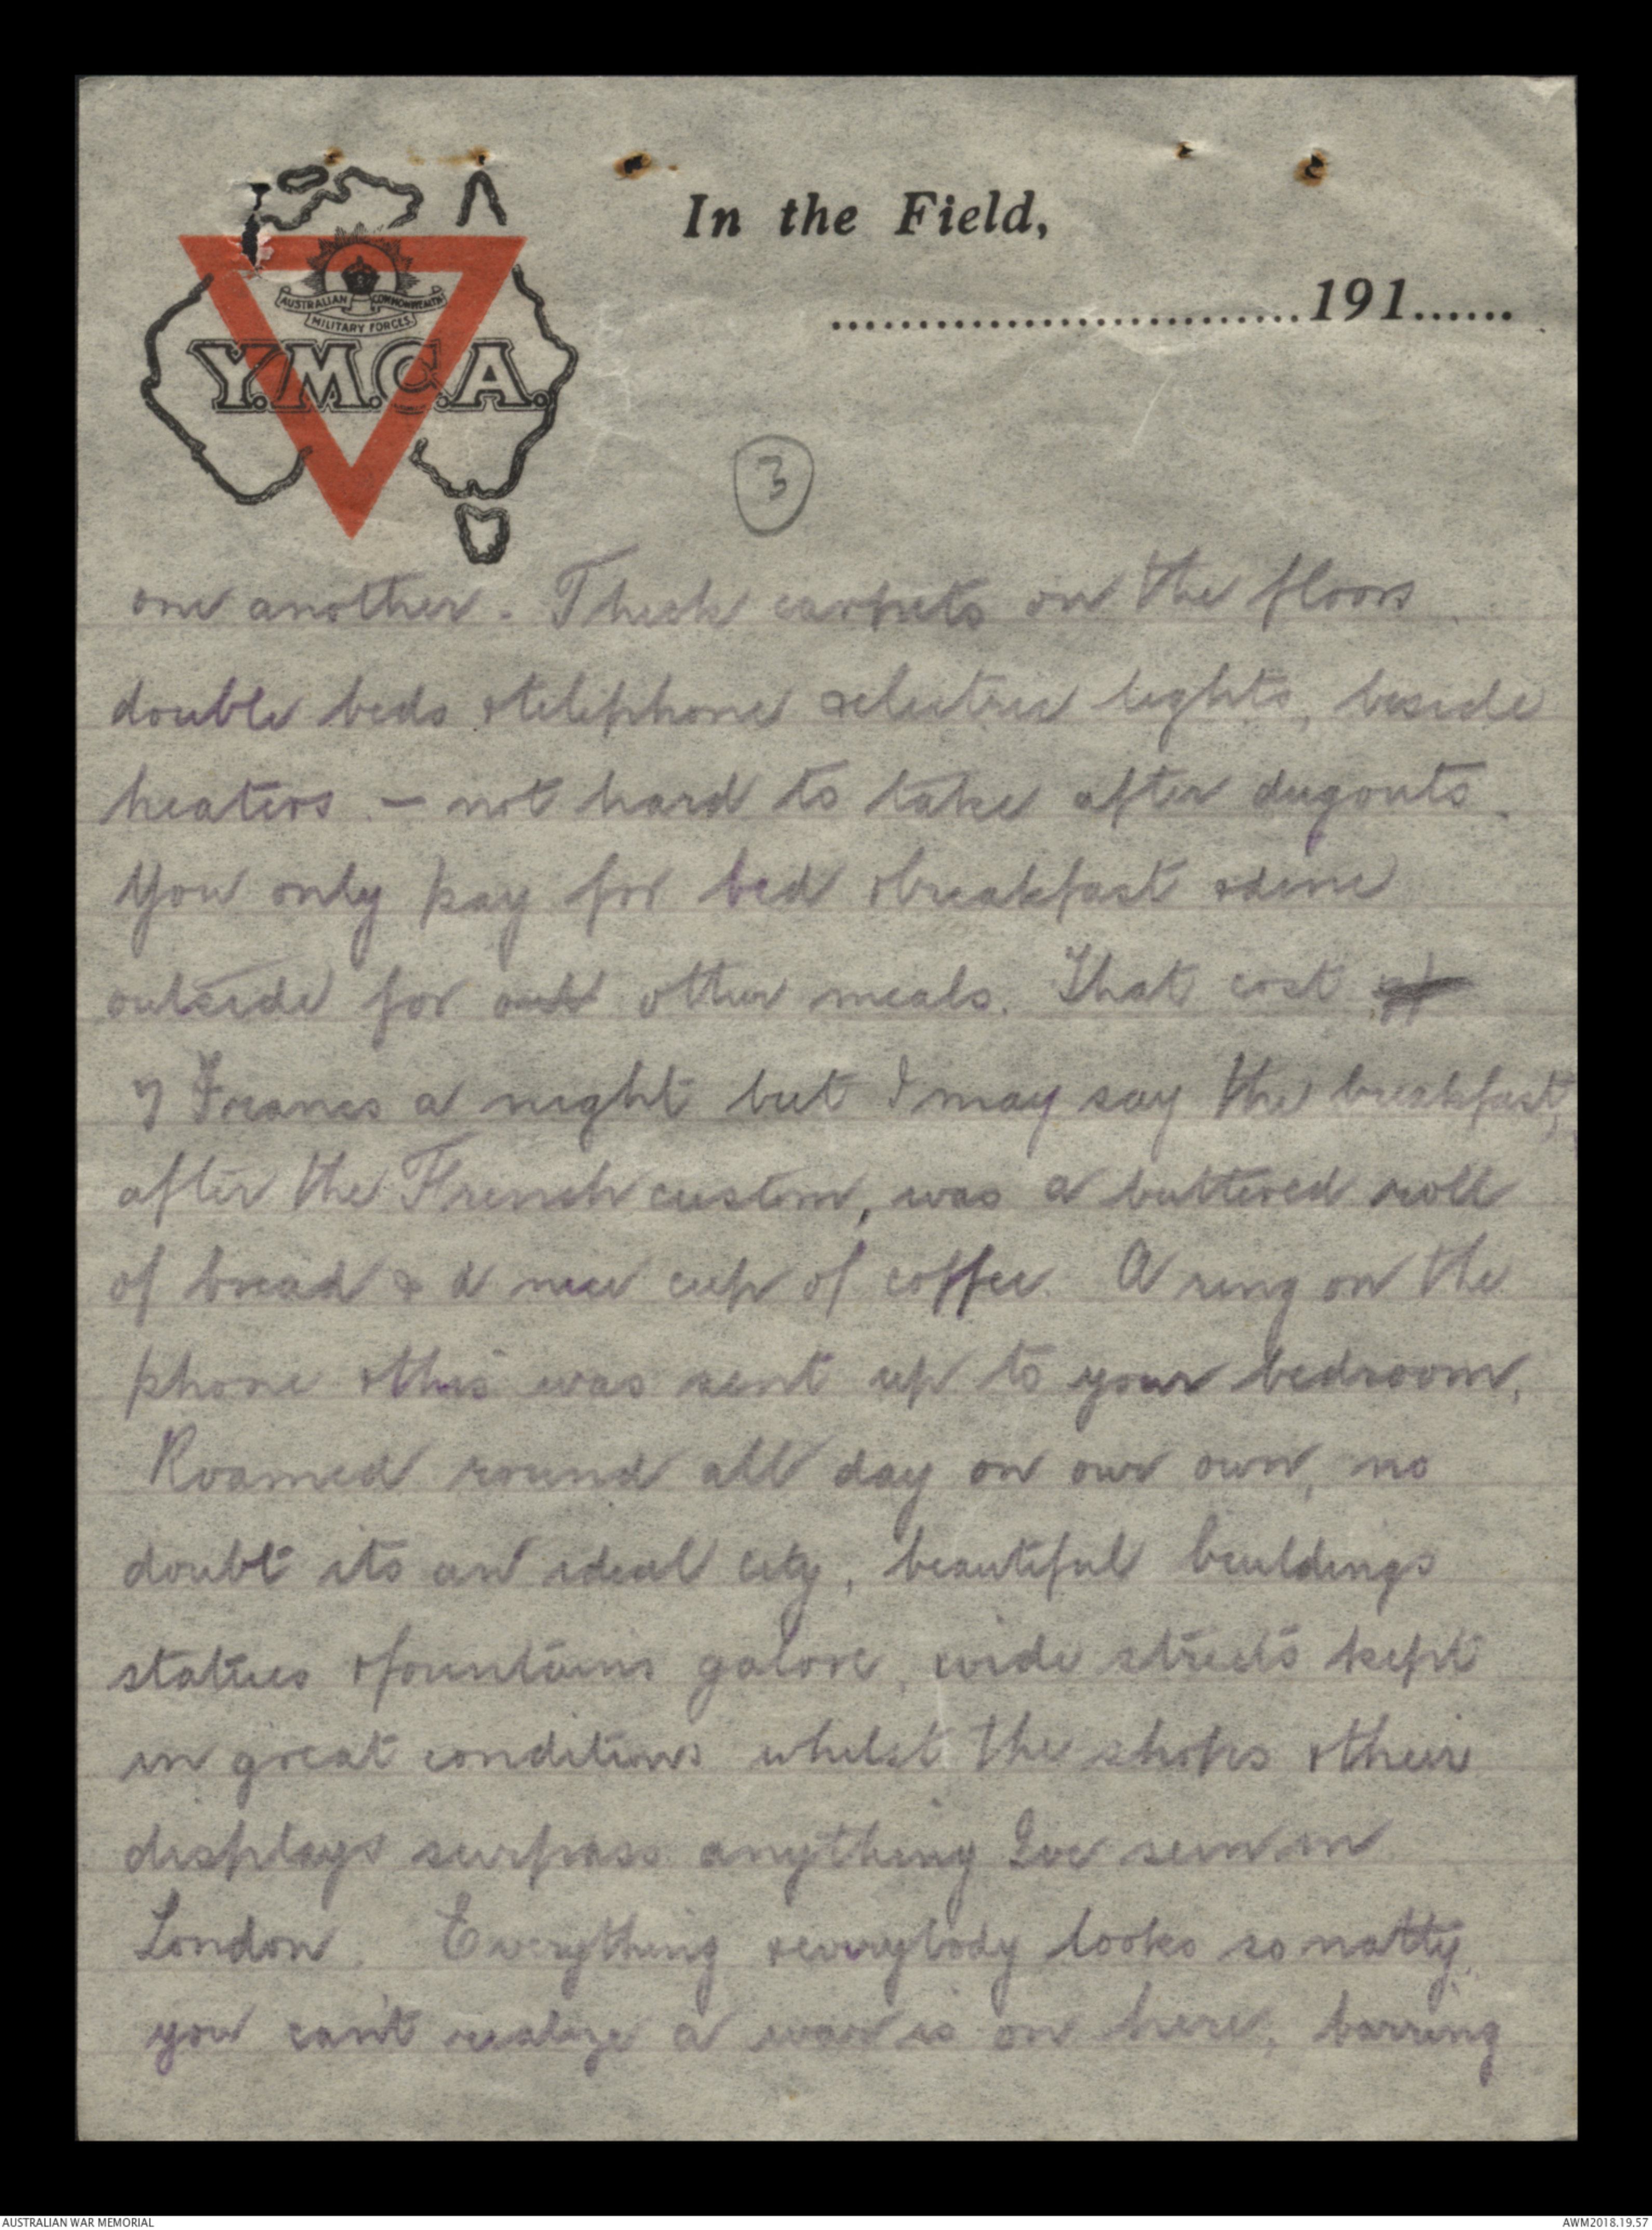 In the Field,
AUSTRALIAN COMMONWEALTH
MILITARY FORCES
..............................191......
Y.M.C.A.
3
one another. Thick carpets on the floors
double beds & telephone & electric lights, beside
heaters. – not hard to take after dugouts.
You only pay for bed & breakfast & dine
outside for all other meals. That cost
7 Francs a night but I may say the breakfast,
after the French custom, was a buttered roll
of bread & a nice cup of coffee. A ring on the
phone & this was sent up to your bedroom.
Roamed round all day on our own, no
doubt its an ideal city, beautiful buildings
statues & fountains galore, wide streets kept
in great conditions whilst the shops & their
displays surpass anything Ive seen in
London. Everything & everybody looks so natty,
you can't realize a war is on here, barring
AUSTRALIAN WAR MEMORIAL
AWM2018.19.57